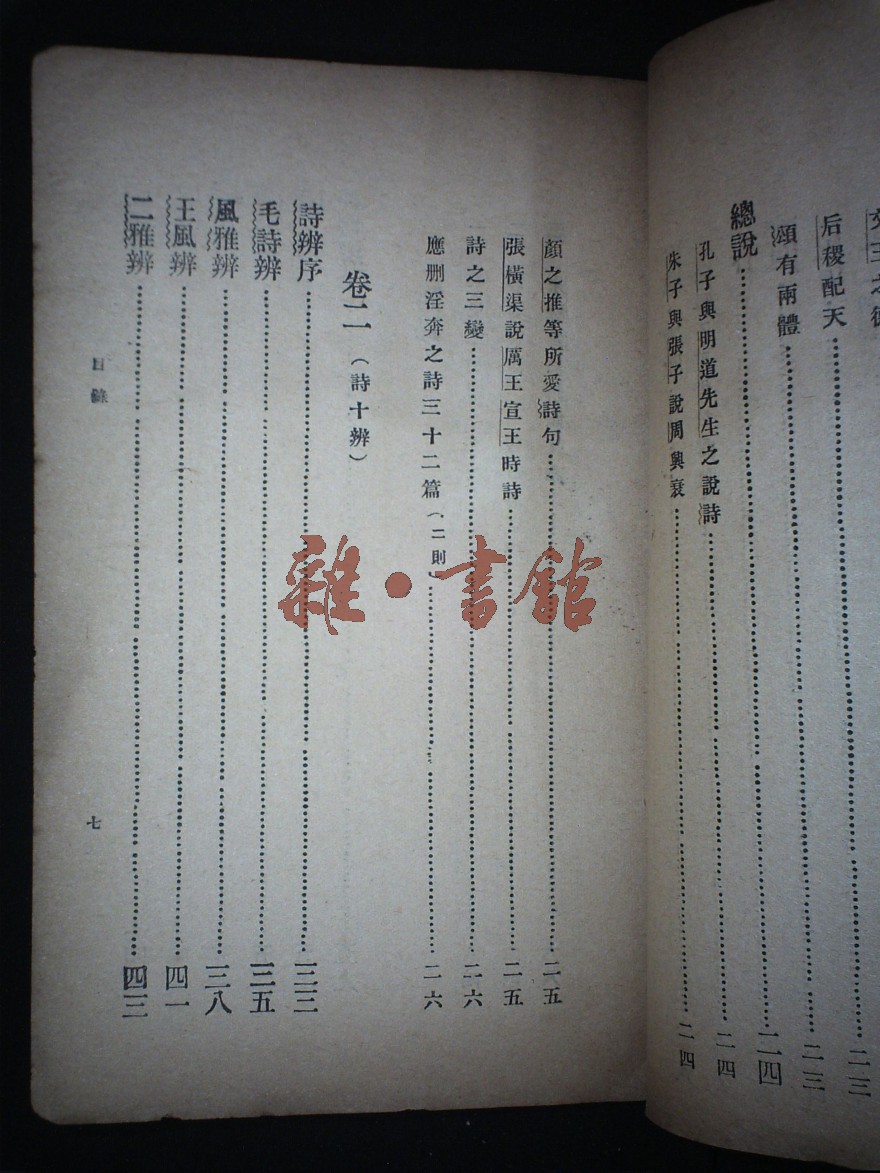 后稷配天……二三
頌有兩體……二三
總說……二四
孔子與明道先生之說詩……二四
朱子與張子說周興衰……二四
顏之推等所愛詩句……二五
張橫渠說厲王宣王時詩……二五
詩之三變……二六
應刪淫奔之詩三十二篇（二則）……二六
卷二（詩十辨）
詩辨序……三三
毛詩辨……三五
風雅辨……三八
王風辨……四一
二雅辨……四三
目錄
七
雜·書館